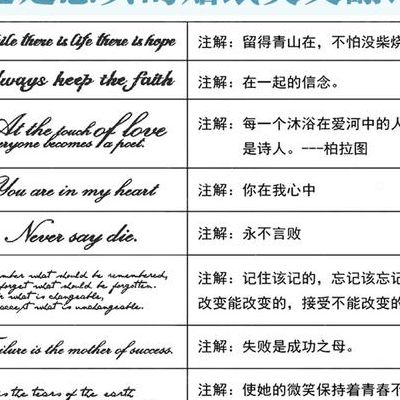 there is life there is hope
注解：留得青山在，不怕没柴烧
keep the faith
注解：在一起的信念。
At the touch of love
becomes a poet.
注解：每一个沐浴在爱河中的人
是诗人。---柏拉图
You are in my heart
注解：你在我心中
Never say die.
注解：永不言败
what should be remembered,
forget what should be forgotten.
what is changeable,
accept what is unchangeable.
注解：记住该记的，忘记该忘记
改变能改变的，接受不能改变的
is the mother of success.
注解：失败是成功之母。
the tears of the earth
注解：使她的微笑保持着青春不